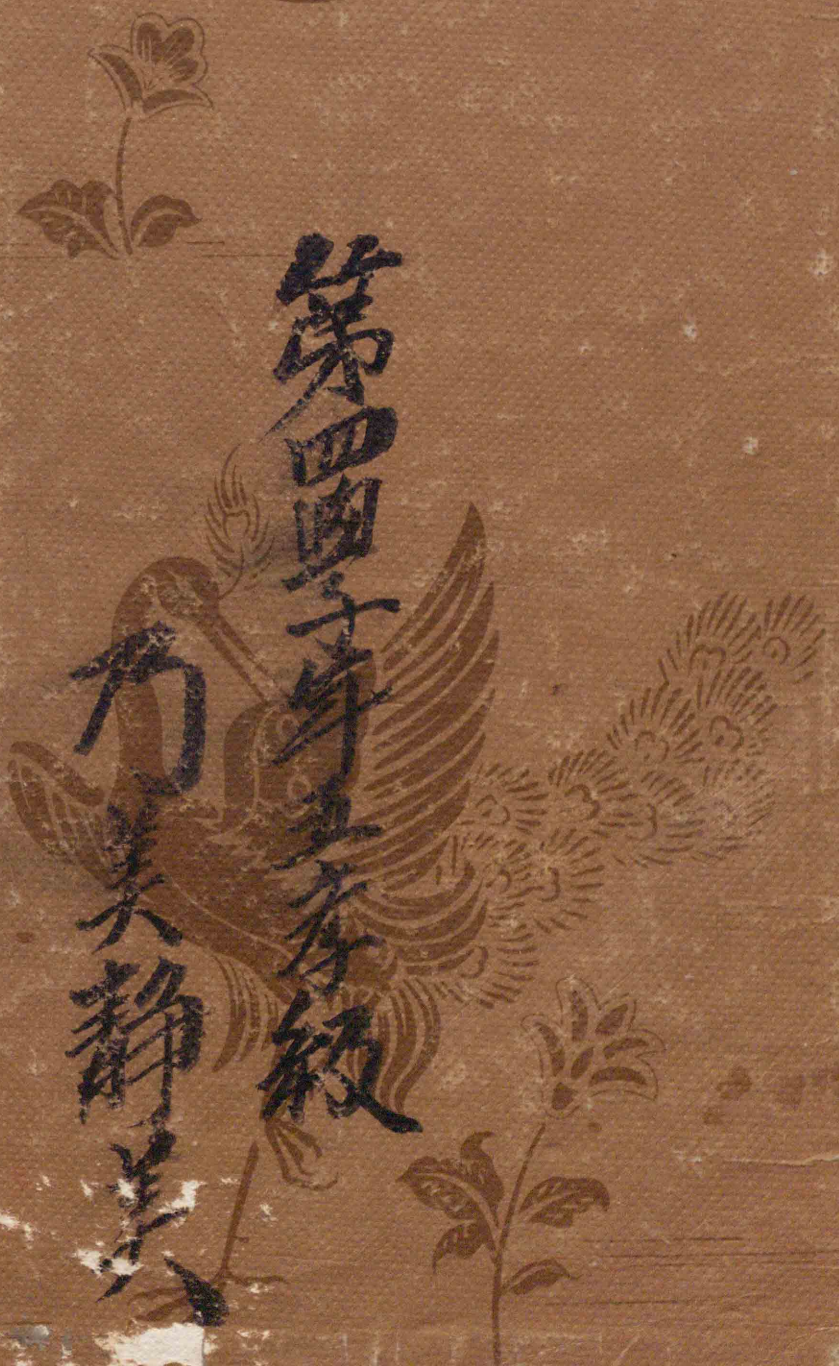 第四學年五孝級
乃美静美